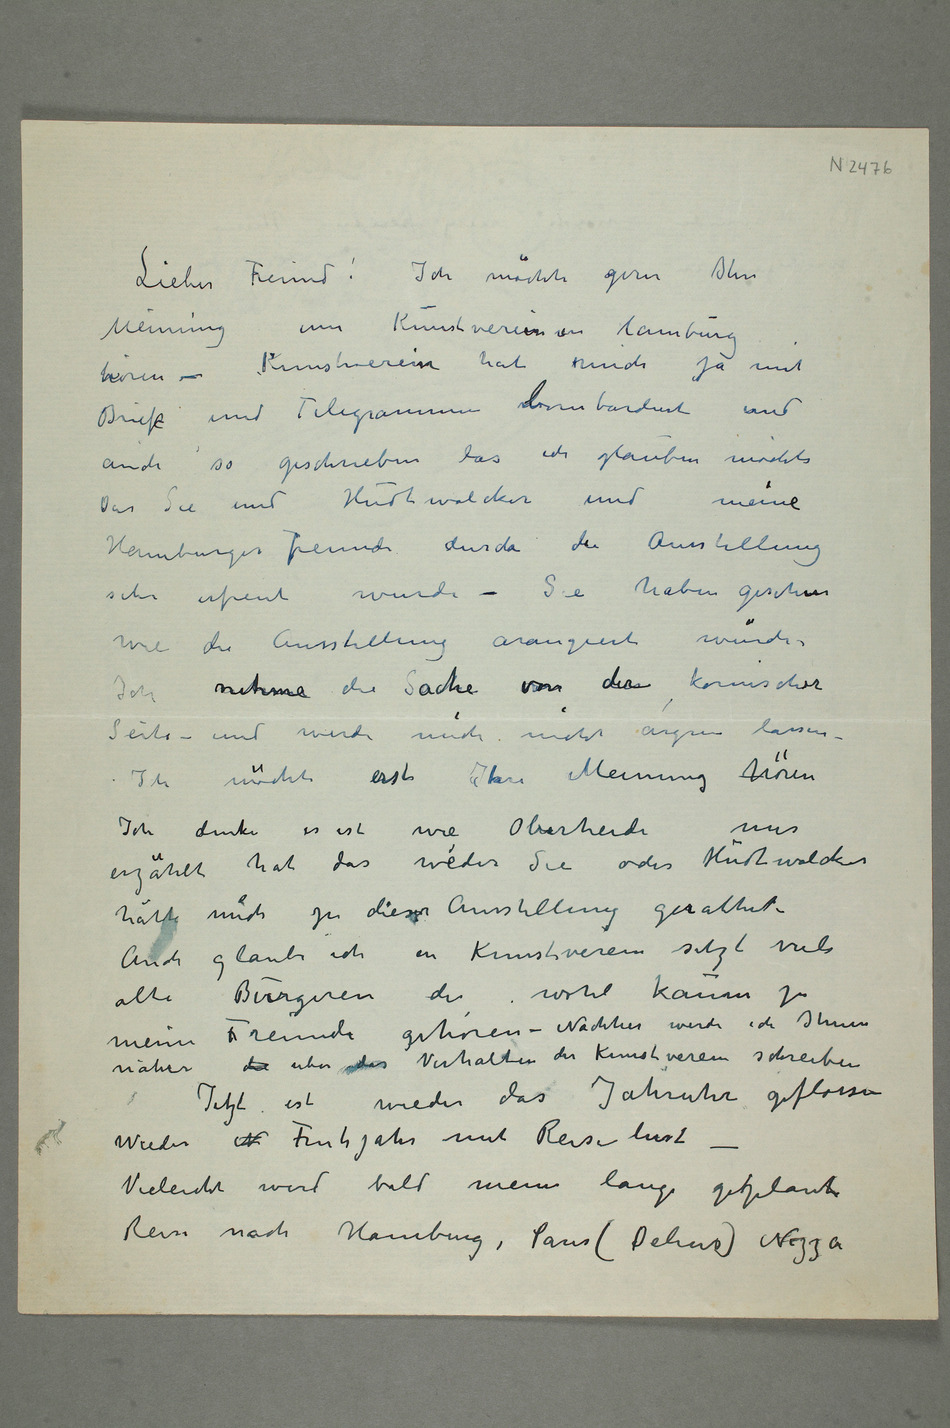 N 2476
Lieber Freund! Ich möchte gern Ihre
Meinung um Kunstverein in Hamburg
hören – Kunstverein hat mich ja mit
Briefe und Telegrammen bombardiert und
auch so geschrieben das ich glauben möchte
Das Sie und Hudtwalcker und meine
Hamburger Freunde durch die Ausstellung
sehr erfreut wurde – Sie haben gesehen
wie die Ausstellung arangiert wurde.
Ich nehme die Sache von der komischer
Seite – und werde mich nicht ärgern lassen –
Ich möchte erst Ihre Meinung hören
Ich denke es ist wie Oberheide mir
erzählt hat das weder Sie oder Hudtwalcker
hätte mich zu dieser Ausstellung gerathet
Auch glaube ich im Kunstverein sitzt viele
alte Bürgeren die wohl kaum zu
meine Freunde gehören – Nachher werde ich Ihnen
näher die über das Verhalten der Kunstverein schreiben
Jetzt ist wieder das Jahruhr geflossen
Wieder Fruhjahr mit Reiselust –
Vieleicht wird bald meine lange geplante
Reise nach Hamburg, Paris (Delius) Nizza